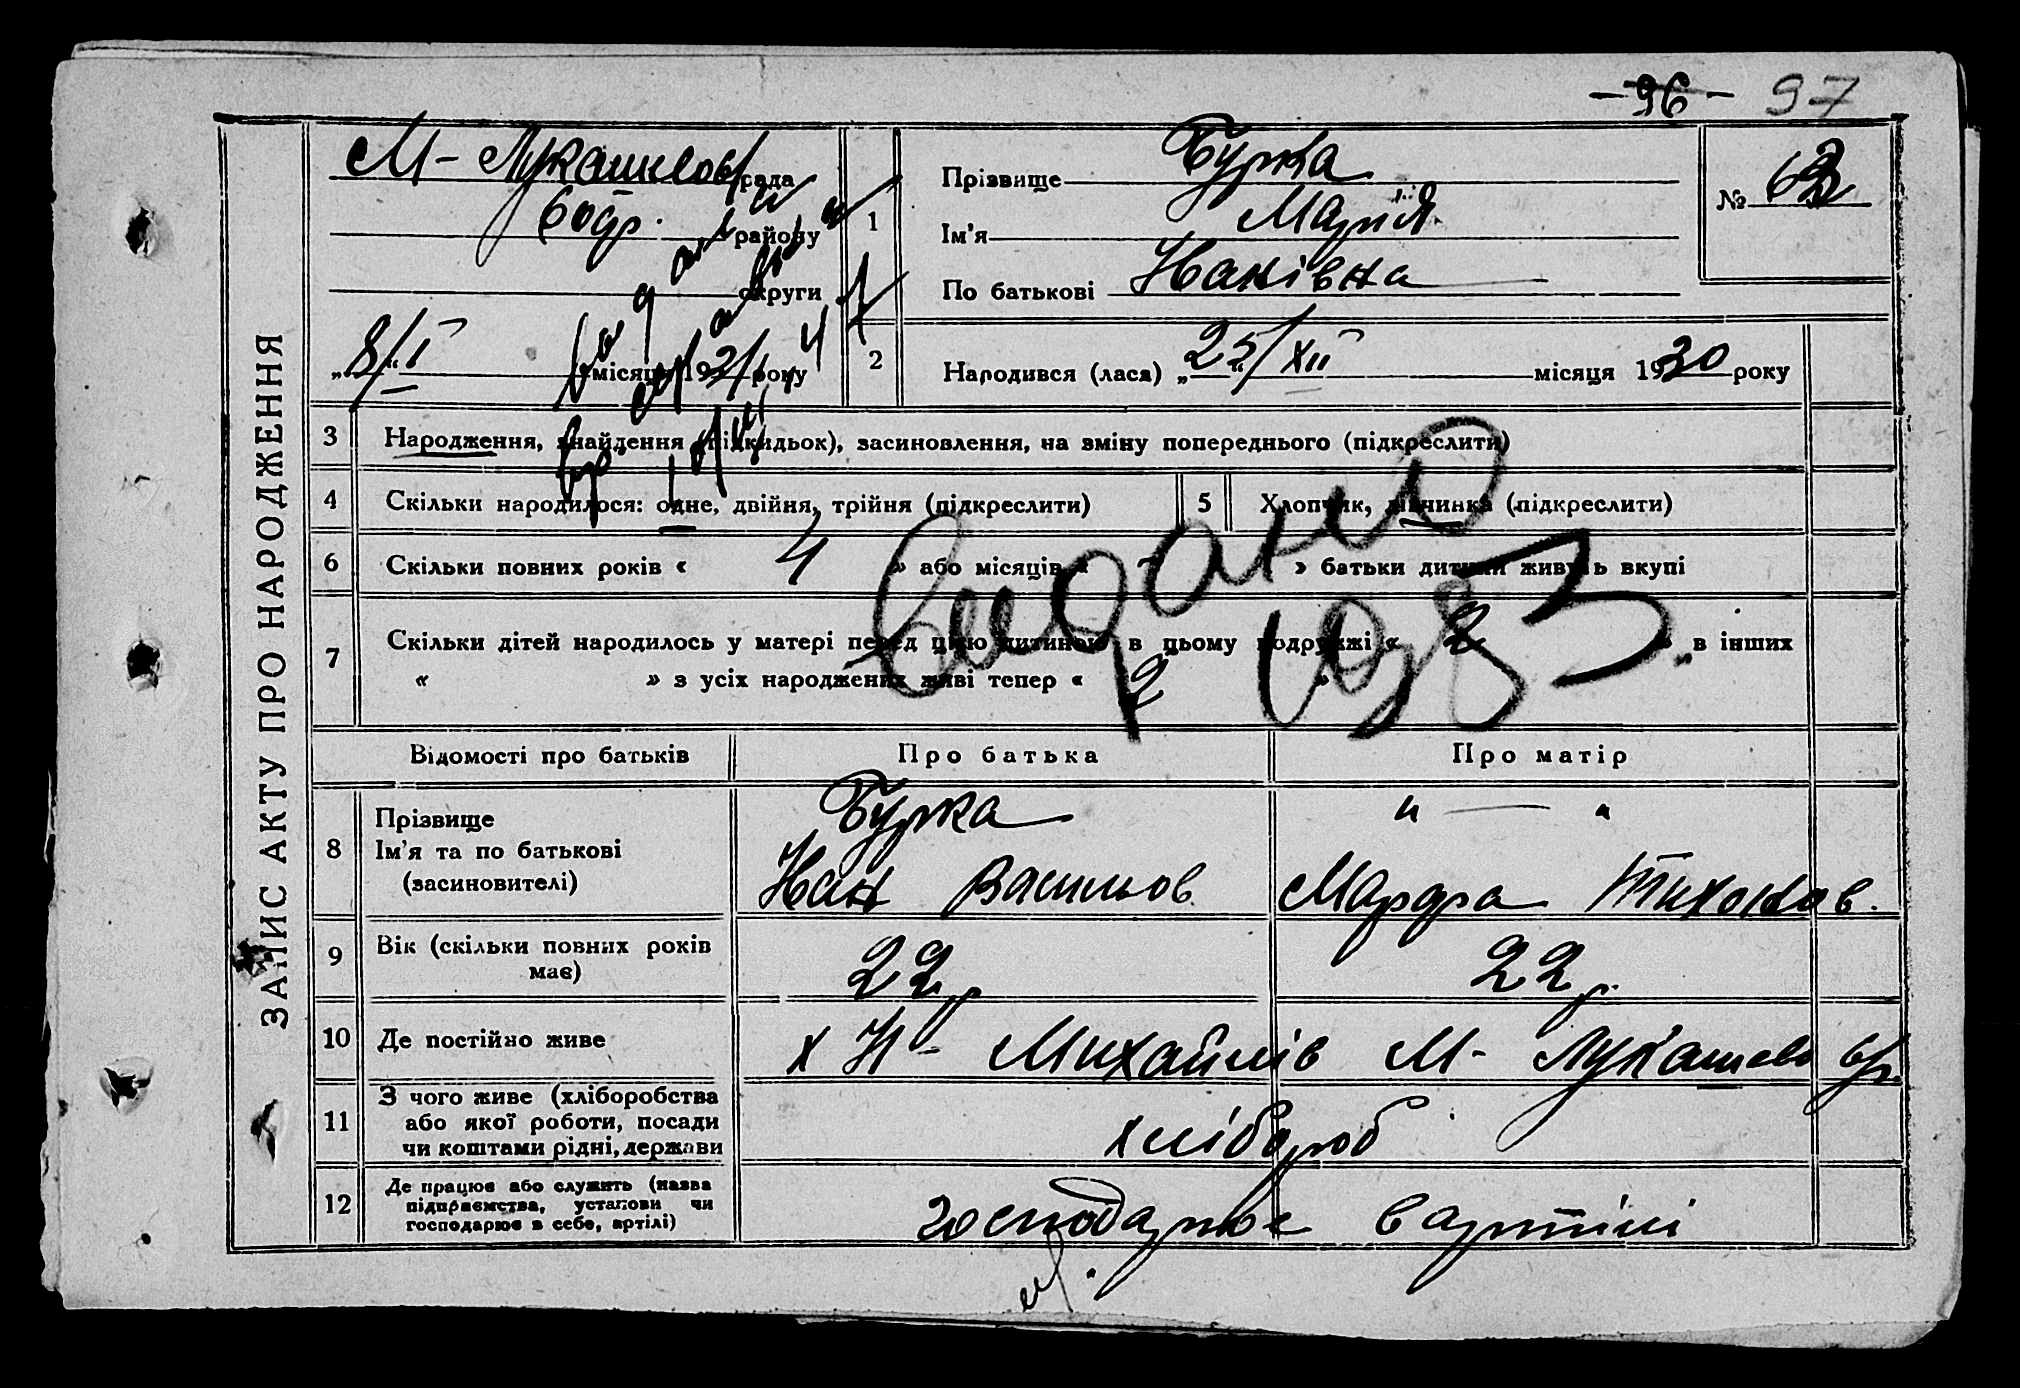 - 96 - 97
ЗАПИС АКТУ ПРО НАРОДЖЕННЯ
М- Лукашев рада
району
округи
„8/I“ місяця 1931 року
1
Прізвище Бурка
Ім’я Марія
По батькові Іванівна
№ 63
2
Народився (лася) „25/XII“ місяця 1930 року
3 Народження, знайдення (підкидьок), засиновлення, на зміну попереднього (підкреслити)
4 Скільки народилося: одне, двійня, трійня (підкреслити)
5 Хлопчик, дівчинка (підкреслити)
6 Скільки повних років « 4 » або місяців « - » батьки дитини живуть вкупі
7 Скільки дітей народилось у матері перед цією дитиною в цьому подружжі « 2 » „в інших
« » з усіх народжених живі тепер « 2 »
видано
1983
Відомості про батьків Про батька Про матір
8 Прізвище
Ім’я та по батькові
(засиновителі)
Бурка
Іван Васильов
„ — „
Марфа Тихонов.
9 Вік (скільки повних років
має)
22 р
22 р.
10 Де постійно живе
х Н- Михайлів М- Лукашево
11 З чого живе (хліборобства
або якої роботи, посади
чи коштами рідні, держави
хлібороб
12 Де працює або служить (назва
підприємства, установи чи
господарює в себе, артілі)
господарює в артілі